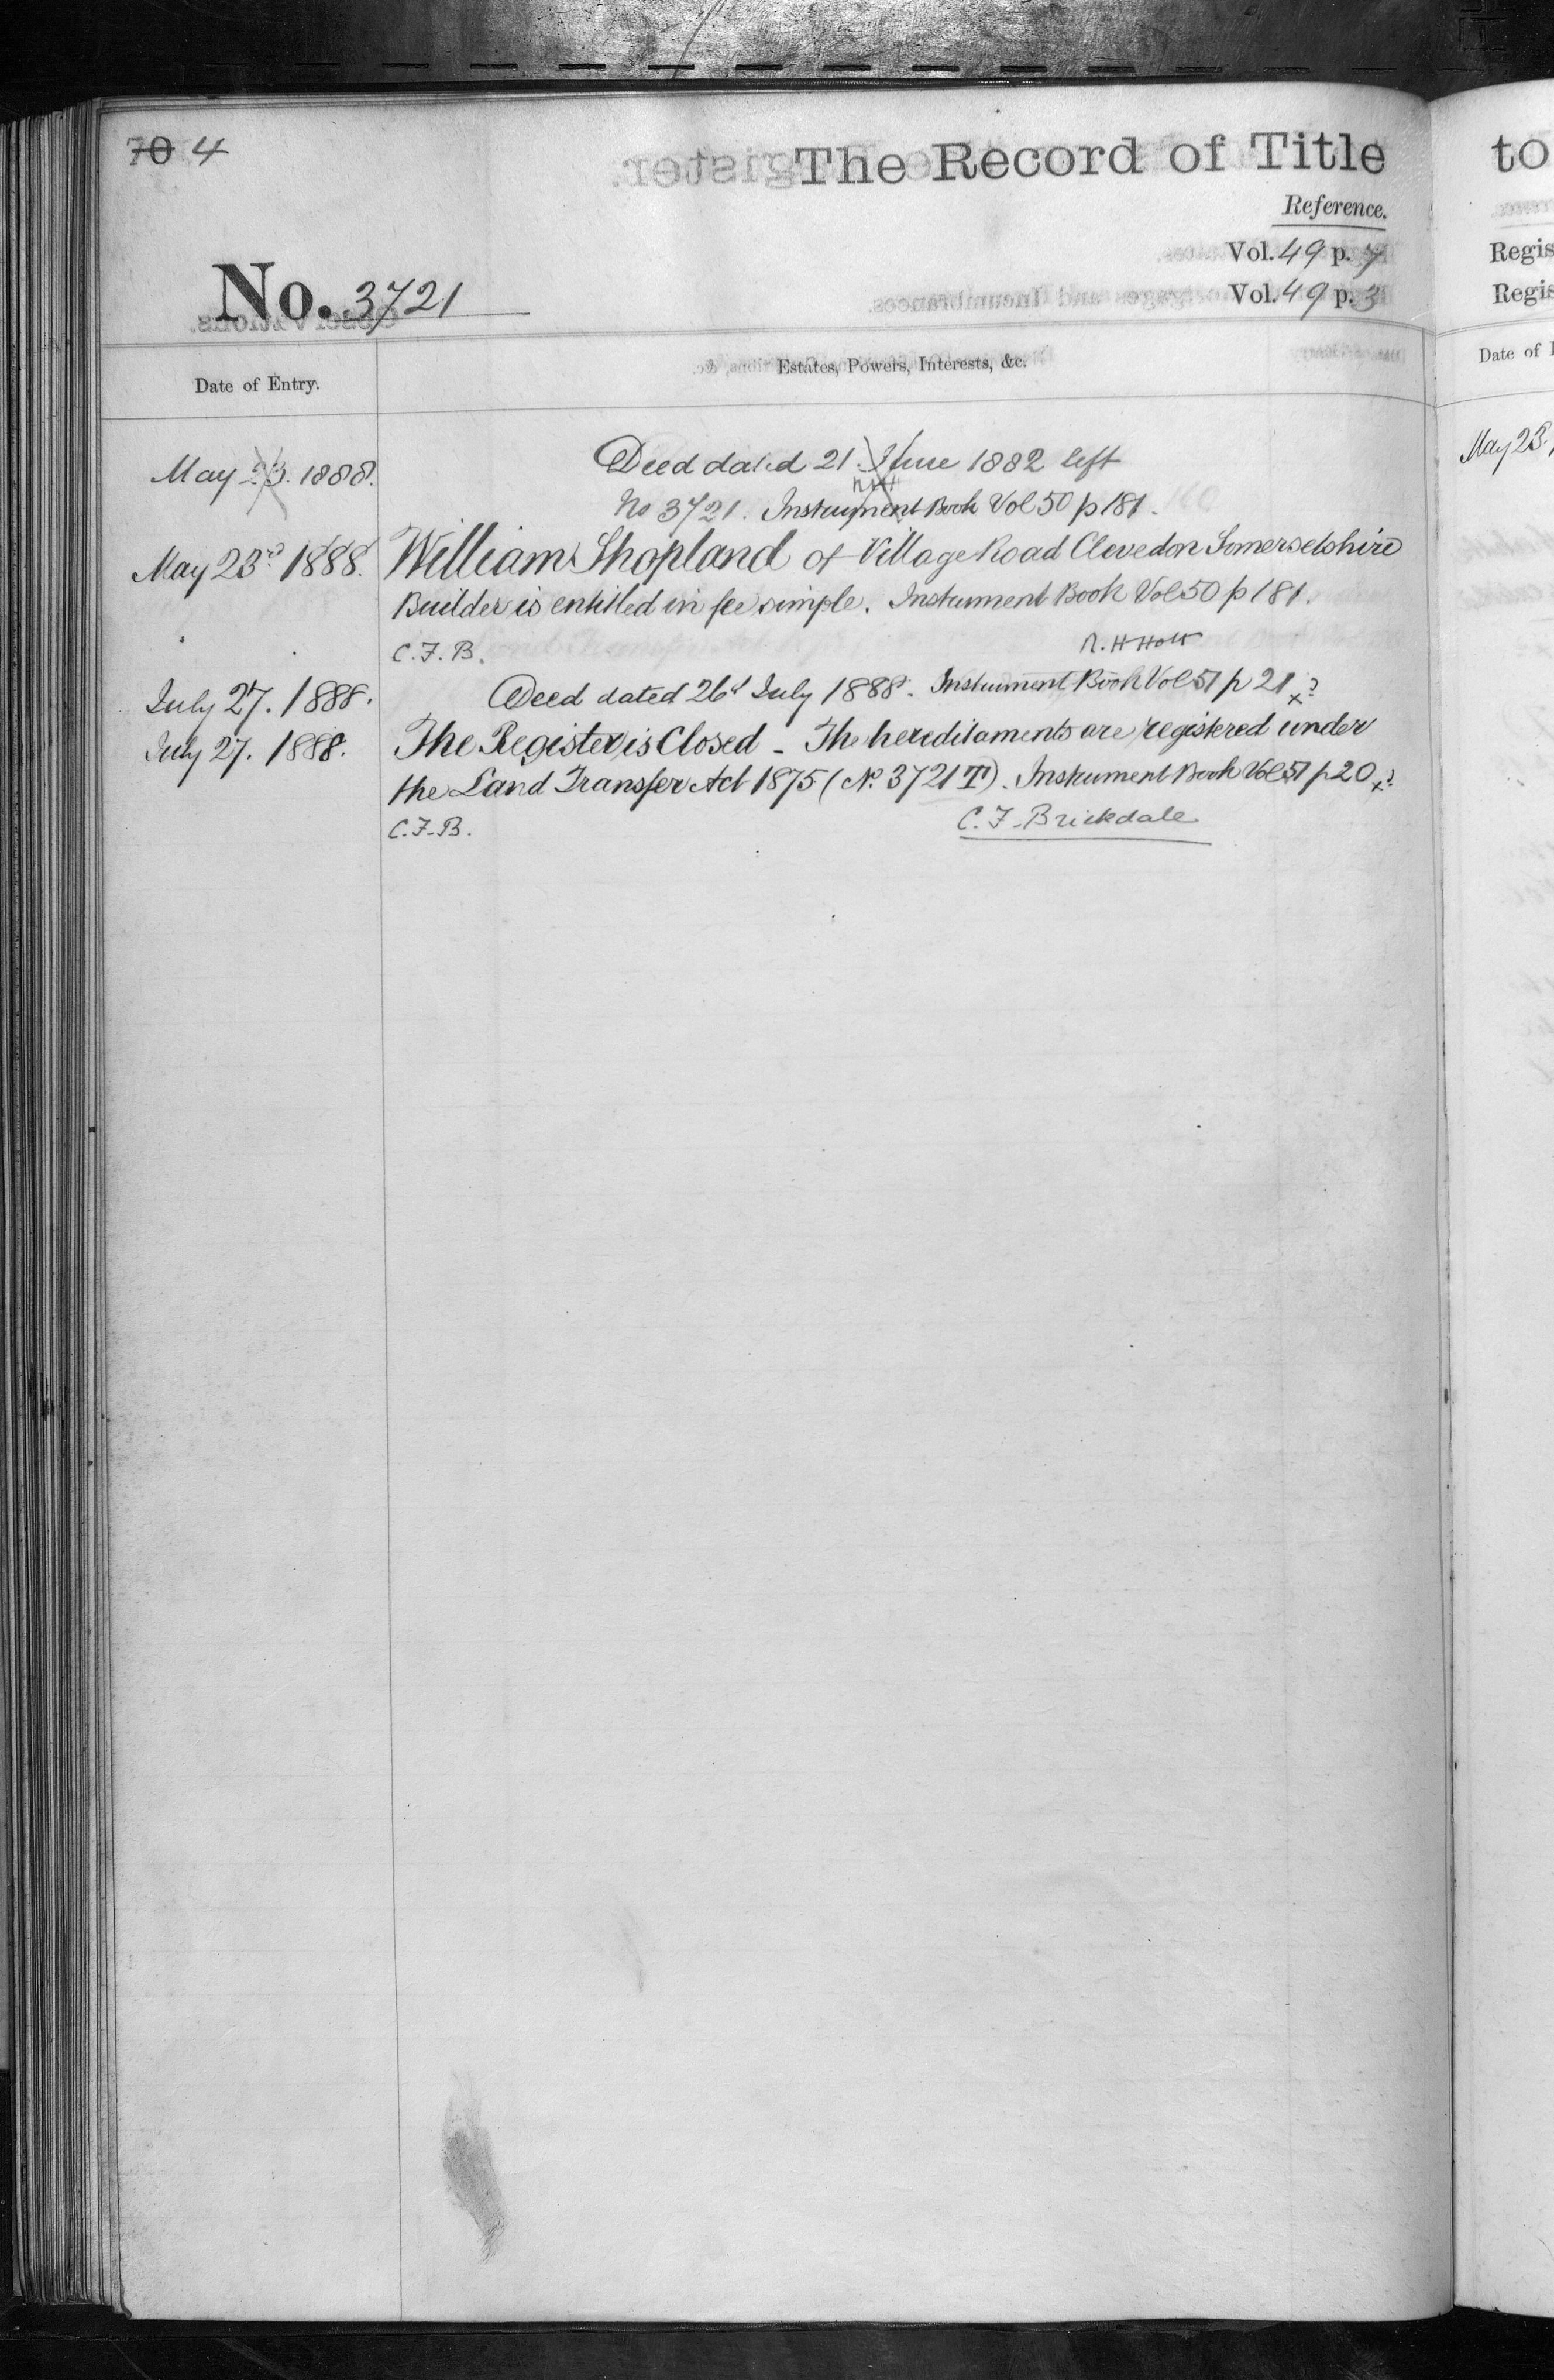 70 4
The Record of Title
Reference.
Vol. 49 p. 7
No. 3721
Vol. 49 p. 3
Date of Entry.
Estates, Powers, Interests, &c.
May 23. 1888.
Deed dated 21. June 1882 left
No 3721. Instrument Book Vol 50 p 181.
May 23rd 1888.
William Shopland of Village Road Clevedon Somersetshire
Builder is entitled in fee simple. Instrument Book Vol 50 p 181.
C.F.B.
R. H Holt
July 27. 1888.
Deed dated 26th July 1888. Instrument Book Vol 51 p 21
July 27. 1888.
The Register is Closed - The hereditaments are registered under
the Land Transfer Act 1875 (No. 3721 T). Instrument Book Vol 51 p 20
C.F.B.
C. F. Brickdale
to
Regis
Regis
Date of
May 23.